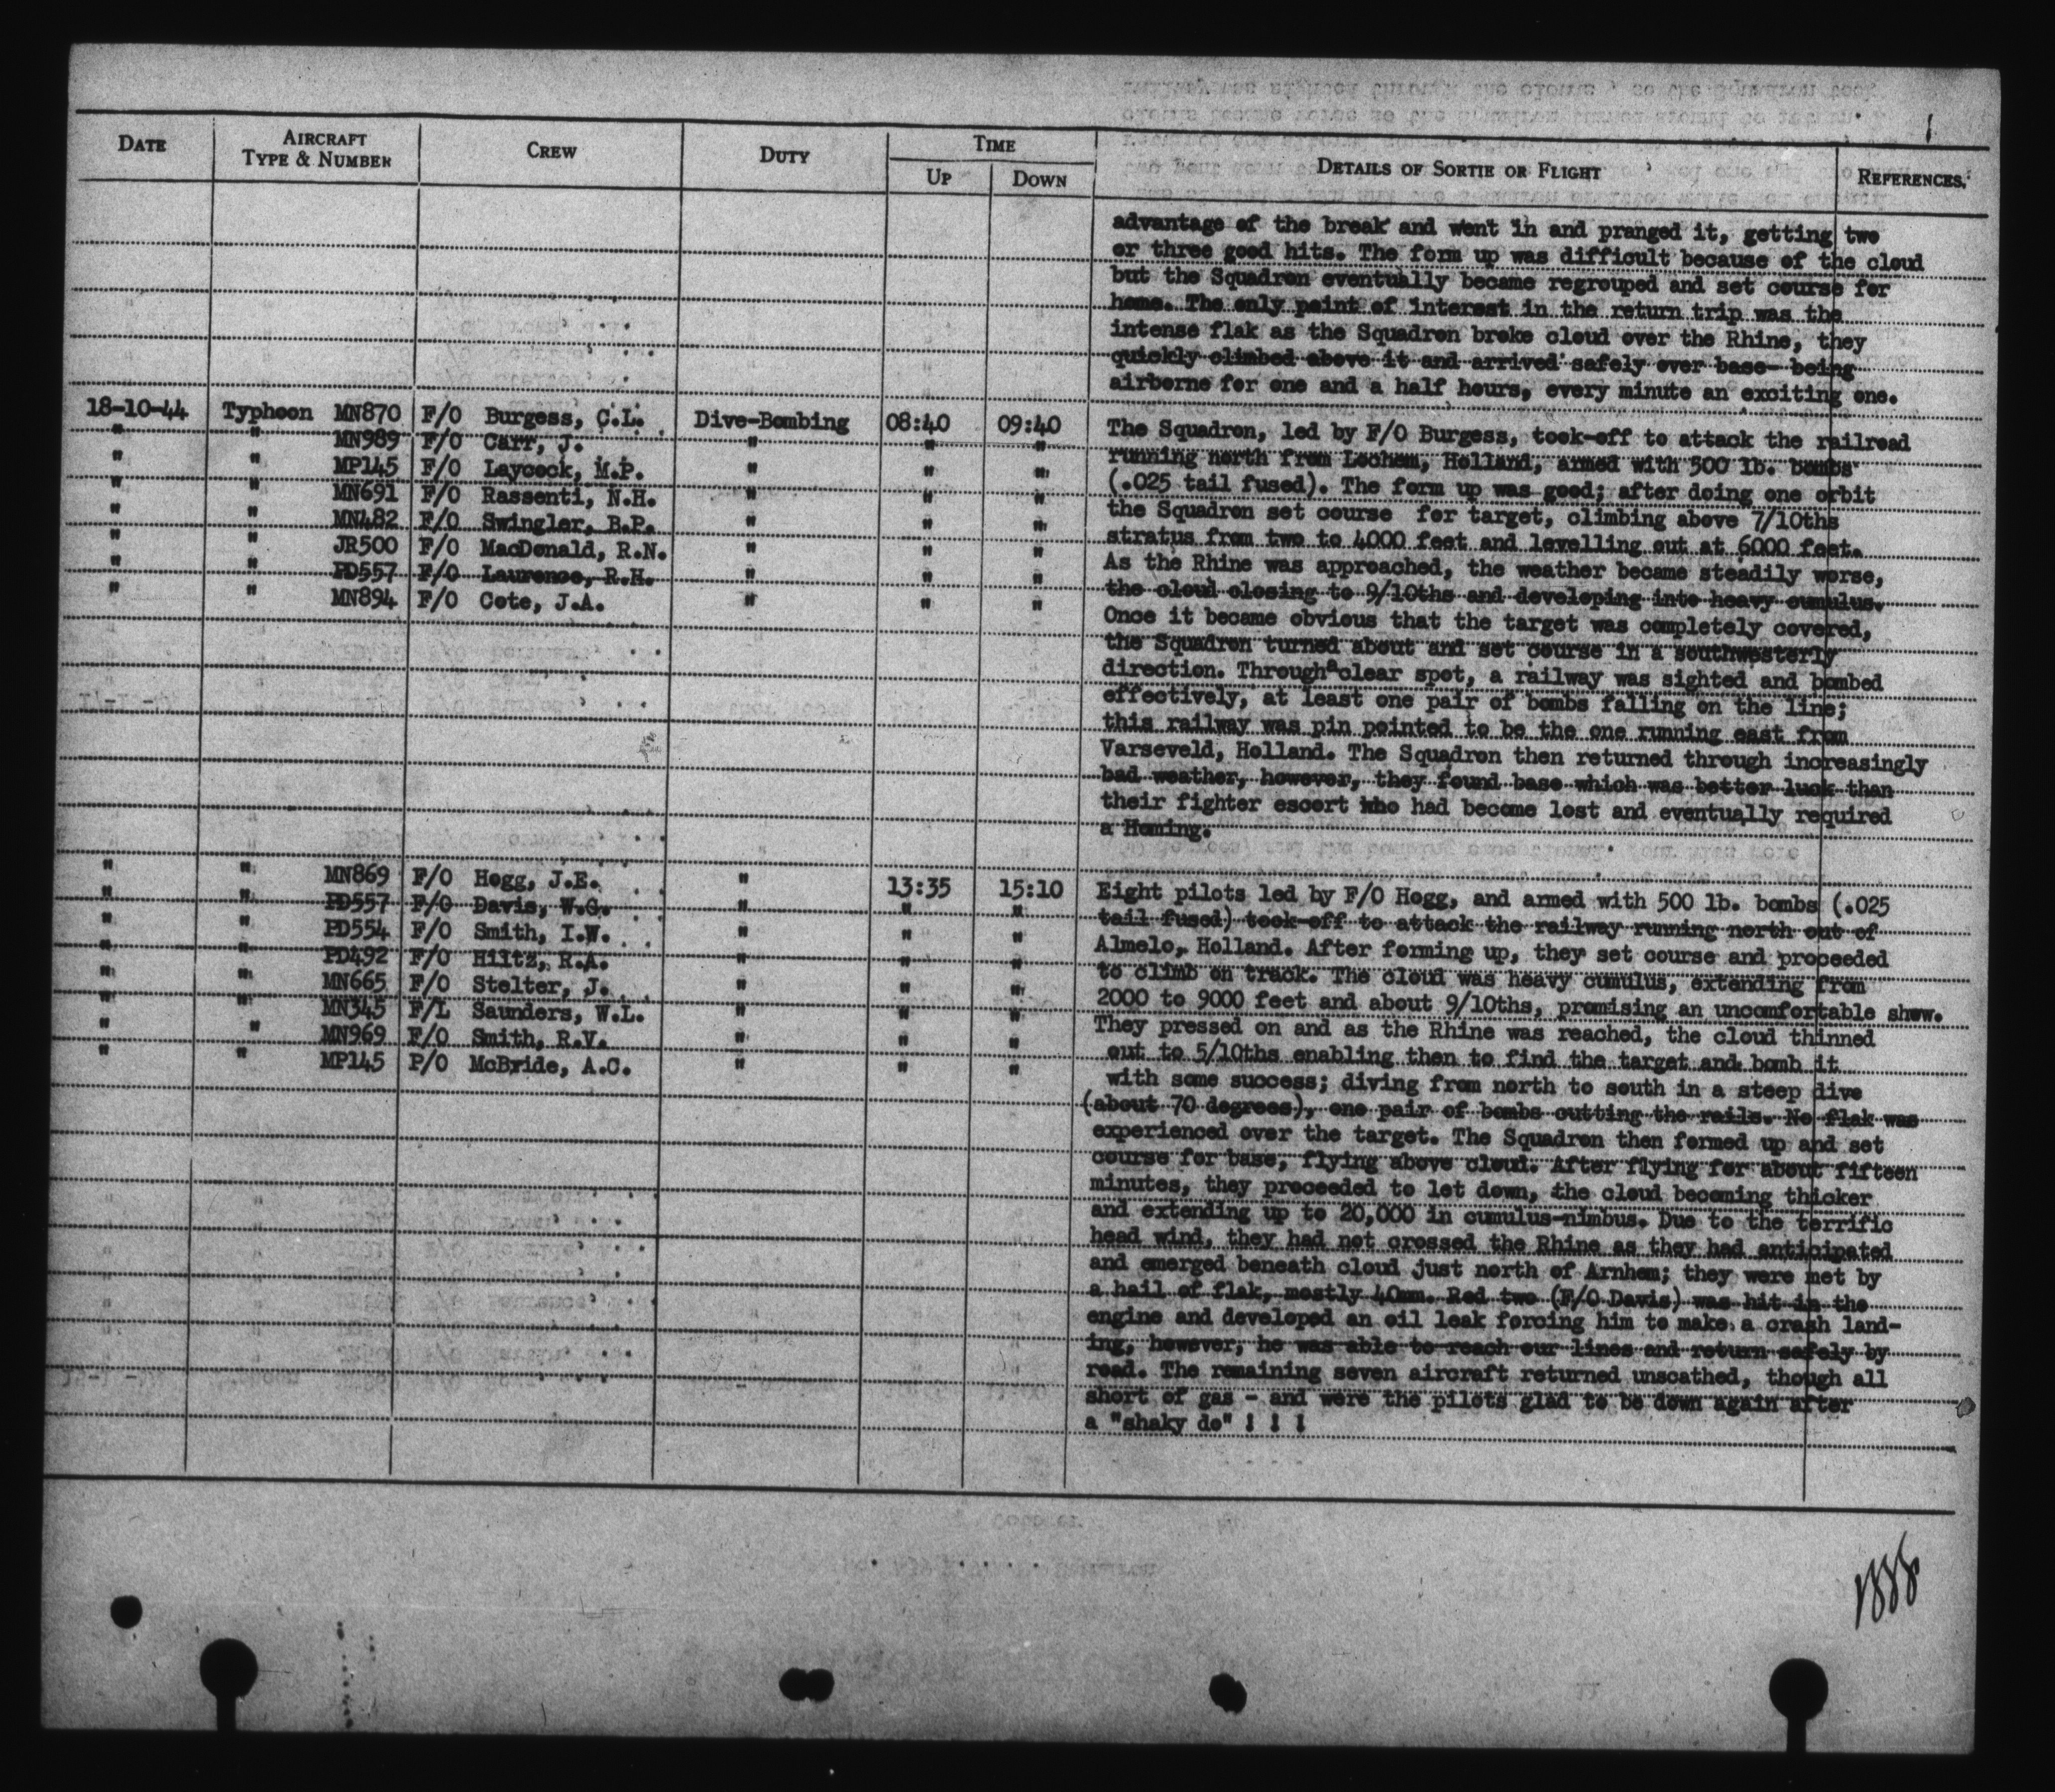 DATE AIRCRAFT TYPE & NUMBER CREW DUTY TIME UP DOWN DETAILS OF SORTIE OR FLIGHT REFERENCES.
advantage of the break and went in and pranged it, getting two
or three good hits. The form up was difficult because of the cloud
but the Squadron eventually became regrouped and set course for
home. The only point of interest in the return trip was the
intense flak as the Squadron broke cloud over the Rhine, they
quickly climbed above it and arrived safely over base- being
airborne for one and a half hours, every minute an exciting one.
18-10-44 Typhoon MN870 F/O Burgess, C.L. Dive-Bombing 08:40 09:40
" " MN989 F/O Carr, J. " " "
" " MP145 F/O Laycock, M.P. " " "
" " MN691 F/O Rassenti, N.H. " " "
" " MN482 F/O Swingler, B.P. " " "
" " JR500 F/O MacDonald, R.N. " " "
" " PD557 F/O Laurence, R.H. " " "
" " MN894 F/O Cote, J.A. " " "
The Squadron, led by F/O Burgess, took-off to attack the railroad
running north from Lochem, Holland, armed with 500 lb. bombs
(.025 tail fused). The form up was good; after doing one orbit
the Squadron set course for target, climbing above 7/10ths
stratus from two to 4000 feet and levelling out at 6000 feet.
As the Rhine was approached, the weather became steadily worse,
the cloud closing to 9/10ths and developing into heavy cumulus.
Once it became obvious that the target was completely covered,
the Squadron turned about and set course in a southwesterly
direction. Through a clear spot, a railway was sighted and bombed
effectively, at least one pair of bombs falling on the line;
this railway was pin pointed to be the one running east from
Varseveld, Holland. The Squadron then returned through increasingly
bad weather, however, they found base which was better luck than
their fighter escort who had become lost and eventually required
a Homing.
" " MN869 F/O Hogg, J.E. " 13:35 15:10
" " PD557 F/O Davis, W.G. " " "
" " PD554 F/O Smith, I.W. " " "
" " PD492 F/O Hiltz, R.A. " " "
" " MN665 F/O Stelter, J. " " "
" " MN345 F/L Saunders, W.L. " " "
" " MN969 F/O Smith, R.V. " " "
" " MP145 P/O McBride, A.C. " " "
Eight pilots led by F/O Hogg, and armed with 500 lb. bombs (.025
tail fused) took-off to attack the railway running north out of
Almelo, Holland. After forming up, they set course and proceeded
to climb on track. The cloud was heavy cumulus, extending from
2000 to 9000 feet and about 9/10ths, promising an uncomfortable show.
They pressed on and as the Rhine was reached, the cloud thinned
out to 5/10ths enabling then to find the target and bomb it
with some success; diving from north to south in a steep dive
(about 70 degrees), one pair of bombs cutting the rails. No flak was
experienced over the target. The Squadron then formed up and set
course for base, flying above cloud. After flying for about fifteen
minutes, they proceeded to let down, the cloud becoming thicker
and extending up to 20,000 in cumulus-nimbus. Due to the terrific
head wind, they had not crossed the Rhine as they had anticipated
and emerged beneath cloud just north of Arnhem; they were met by
a hail of flak, mostly 40mm. Red two (F/O Davis) was hit in the
engine and developed an oil leak forcing him to make a crash land-
ing, however, he was able to reach our lines and return safely by
road. The remaining seven aircraft returned unscathed, though all
short of gas - and were the pilots glad to be down again after
a "shaky do" ! ! !
1888